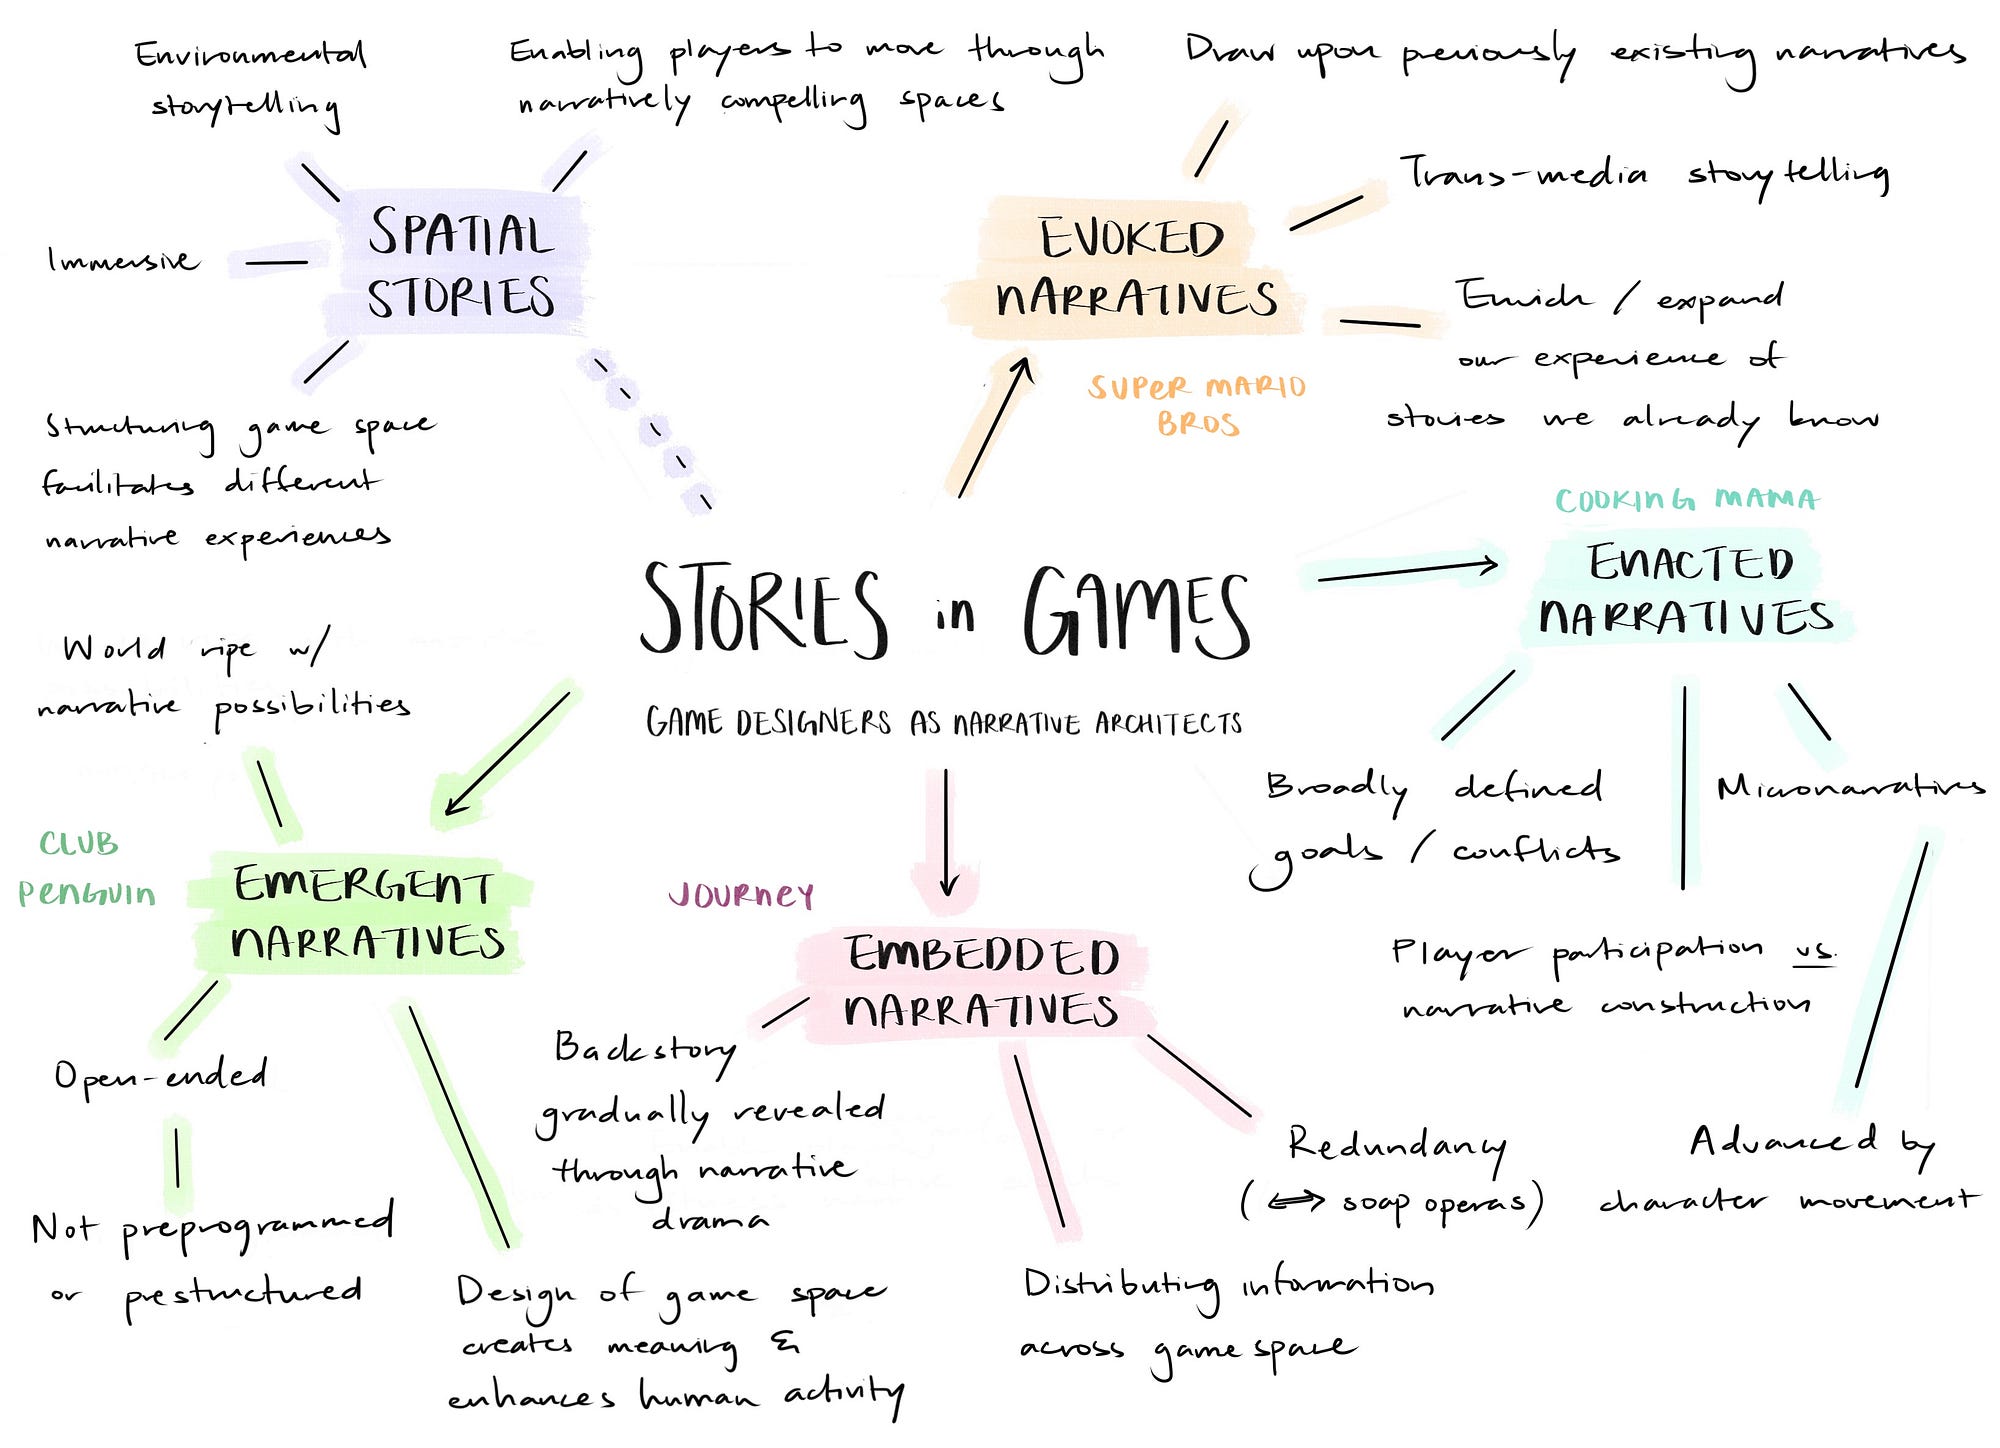 Environmental
storytelling
Enabling players to move through
narratively compelling spaces
Draw upon previously existing narratives
Trans-media storytelling
SPATIAL
STORIES
Immersive
Structuring game space
facilitates different
narrative experiences
EVOKED
NARRATIVES
SUPER MARIO
BROS
Enrich / expand
our experience of
stories we already know
COOKING MAMA
ENACTED
NARRATIVES
STORIES in GAMES
GAME DESIGNERS AS NARRATIVE ARCHITECTS
World ripe w/
narrative possibilities
CLUB
PENGUIN
EMERGENT
NARRATIVES
Open-ended
Not preprogrammed
or prestructured
Design of game space
creates meaning &
enhances human activity
JOURNEY
EMBEDDED
NARRATIVES
Backstory
gradually revealed
through narrative
drama
Distributing information
across game space
Redundancy
(⟷ soap operas)
Broadly defined
goals / conflicts
Player participation vs.
narrative construction
Micronarratives
Advanced by
character movement